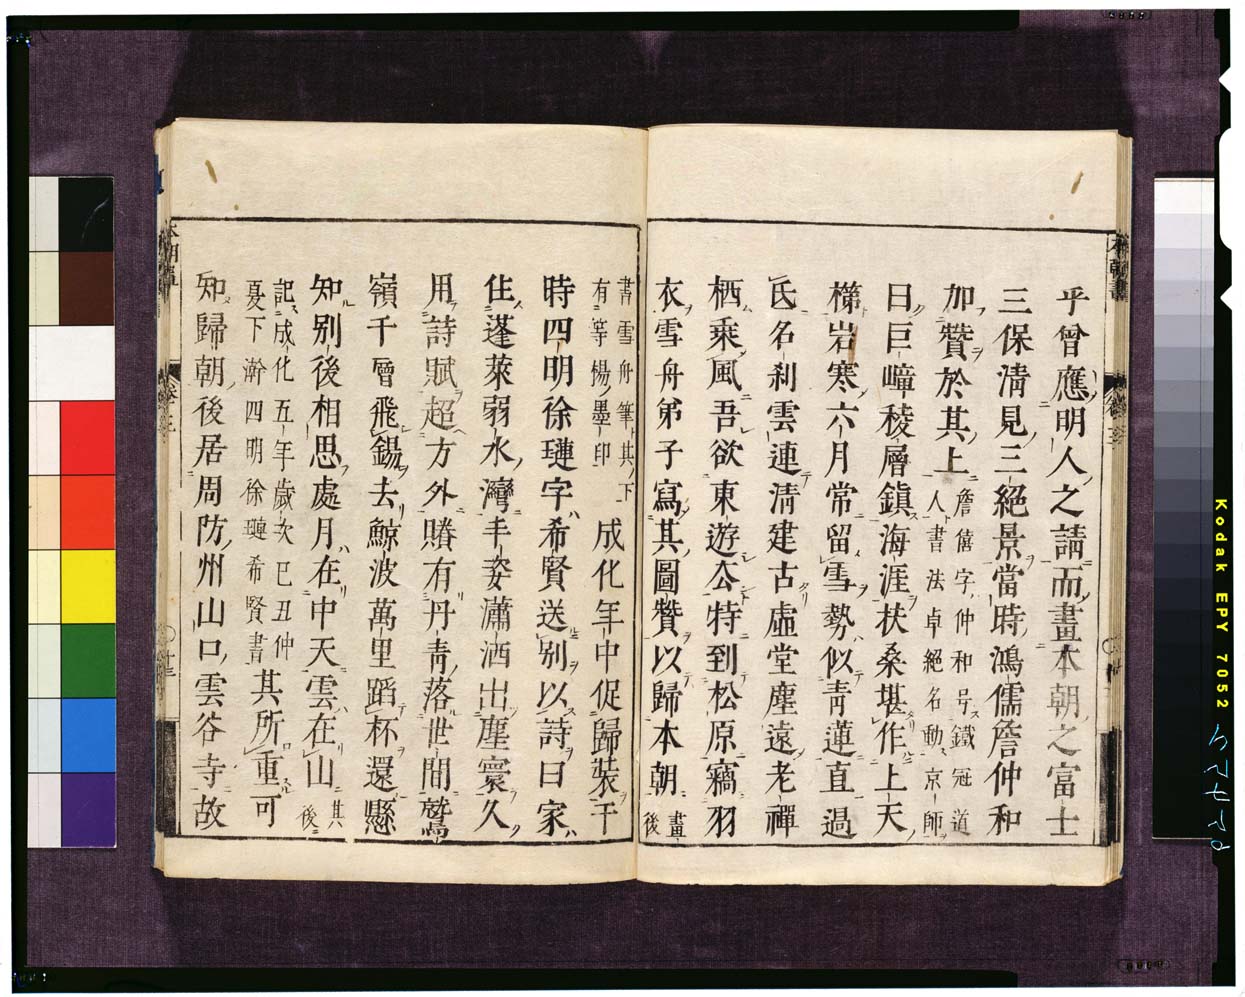 乎曾應明人之請而畫本朝之富士
三保清見三絕景當時鴻儒詹仲和
加贊於其上 詹僖字仲和号鐵冠道
人書法卓絕名動京師
曰巨嶂稜層鎮海涯扶桑堪作上天
梯岩寒六月常留雪勢似青蓮直過
氏名刹雲連清建古虛堂塵遠老禪
栖乘風吾欲東遊公特到松原竊羽
衣雪舟弟子寫其圖贊以歸本朝 畫
後
書雪舟筆其下
有等楊墨印
成化年中促歸裝干
時四明徐璉字希賢送別以詩曰家
住蓬萊弱水灣丰姿瀟洒出塵寰久
用詩賦超方外賸有丹青落世間鷲
嶺千層飛錫去鯨波萬里蹈杯還懸
知別後相思處月在中天雲在山 其
後
記成化五年歲次己丑仲
夏下澣四明徐璉希賢書
其所重可
知歸朝後居周防州山口雲谷寺故
本朝畫
卷三
十三
Kodak EPY 7052